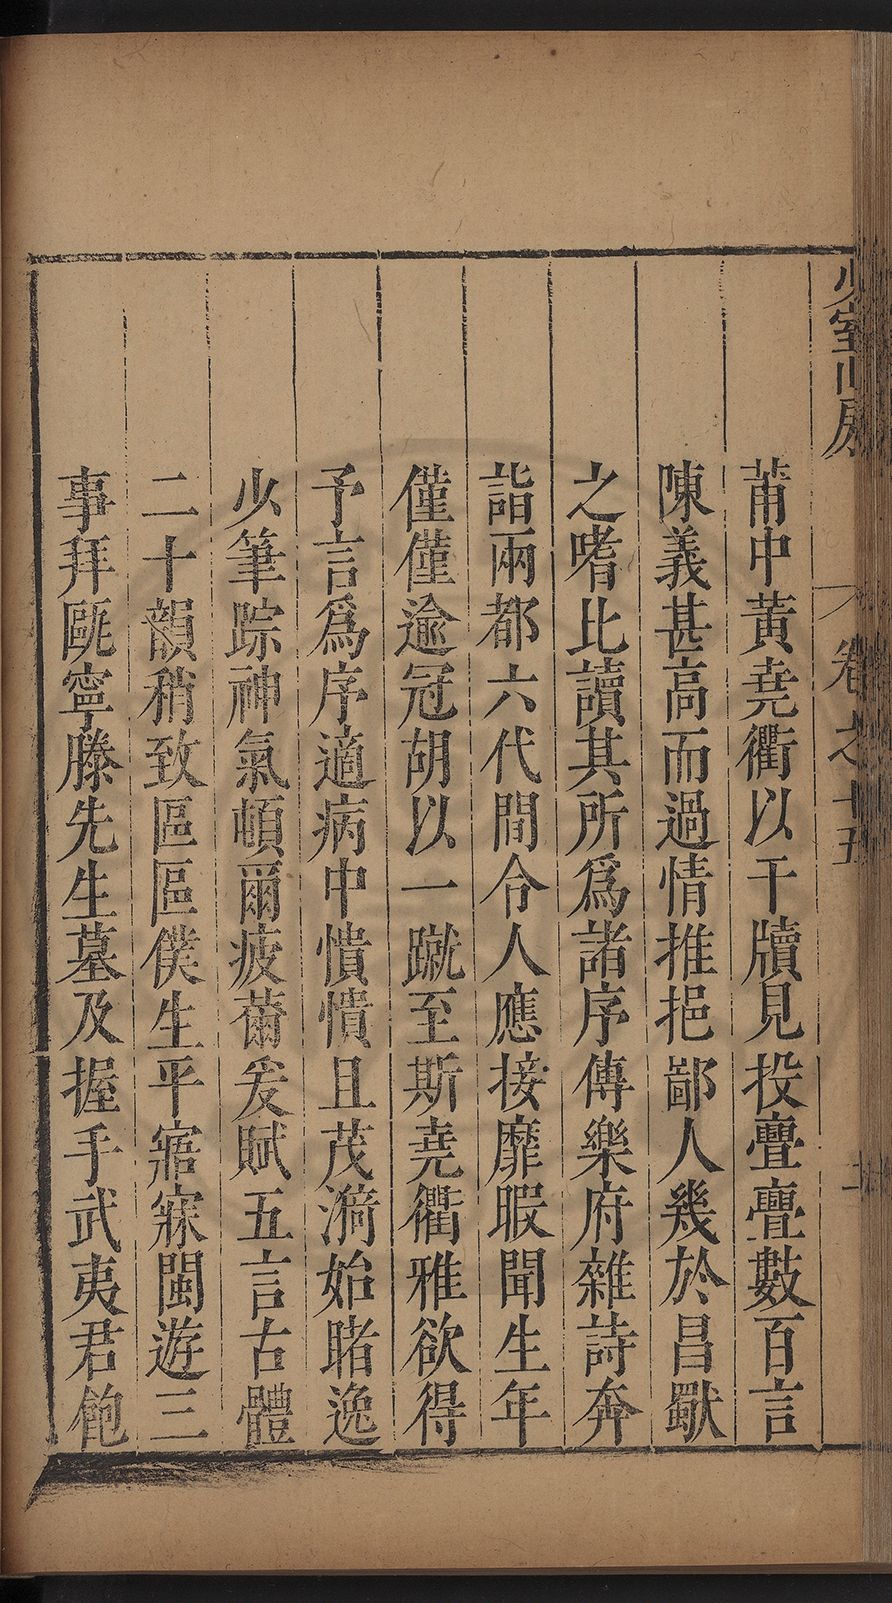 少室山房 卷之十五 二
莆中黃堯衢以干牘見投亹亹數百言
陳義甚高而過情推挹鄙人幾於昌歜
之嗜比讀其所爲諸序傳樂府雜詩奔
詣兩都六代間令人應接靡暇聞生年
僅僅逾冠胡以一蹴至斯堯衢雅欲得
予言爲序適病中憒憒且茂漪始睹逸
少筆踪神氣頓爾疲薾爰賦五言古體
二十韻稍致區區僕生平寤寐閩遊三
事拜甌寧滕先生墓及握手武夷君飽